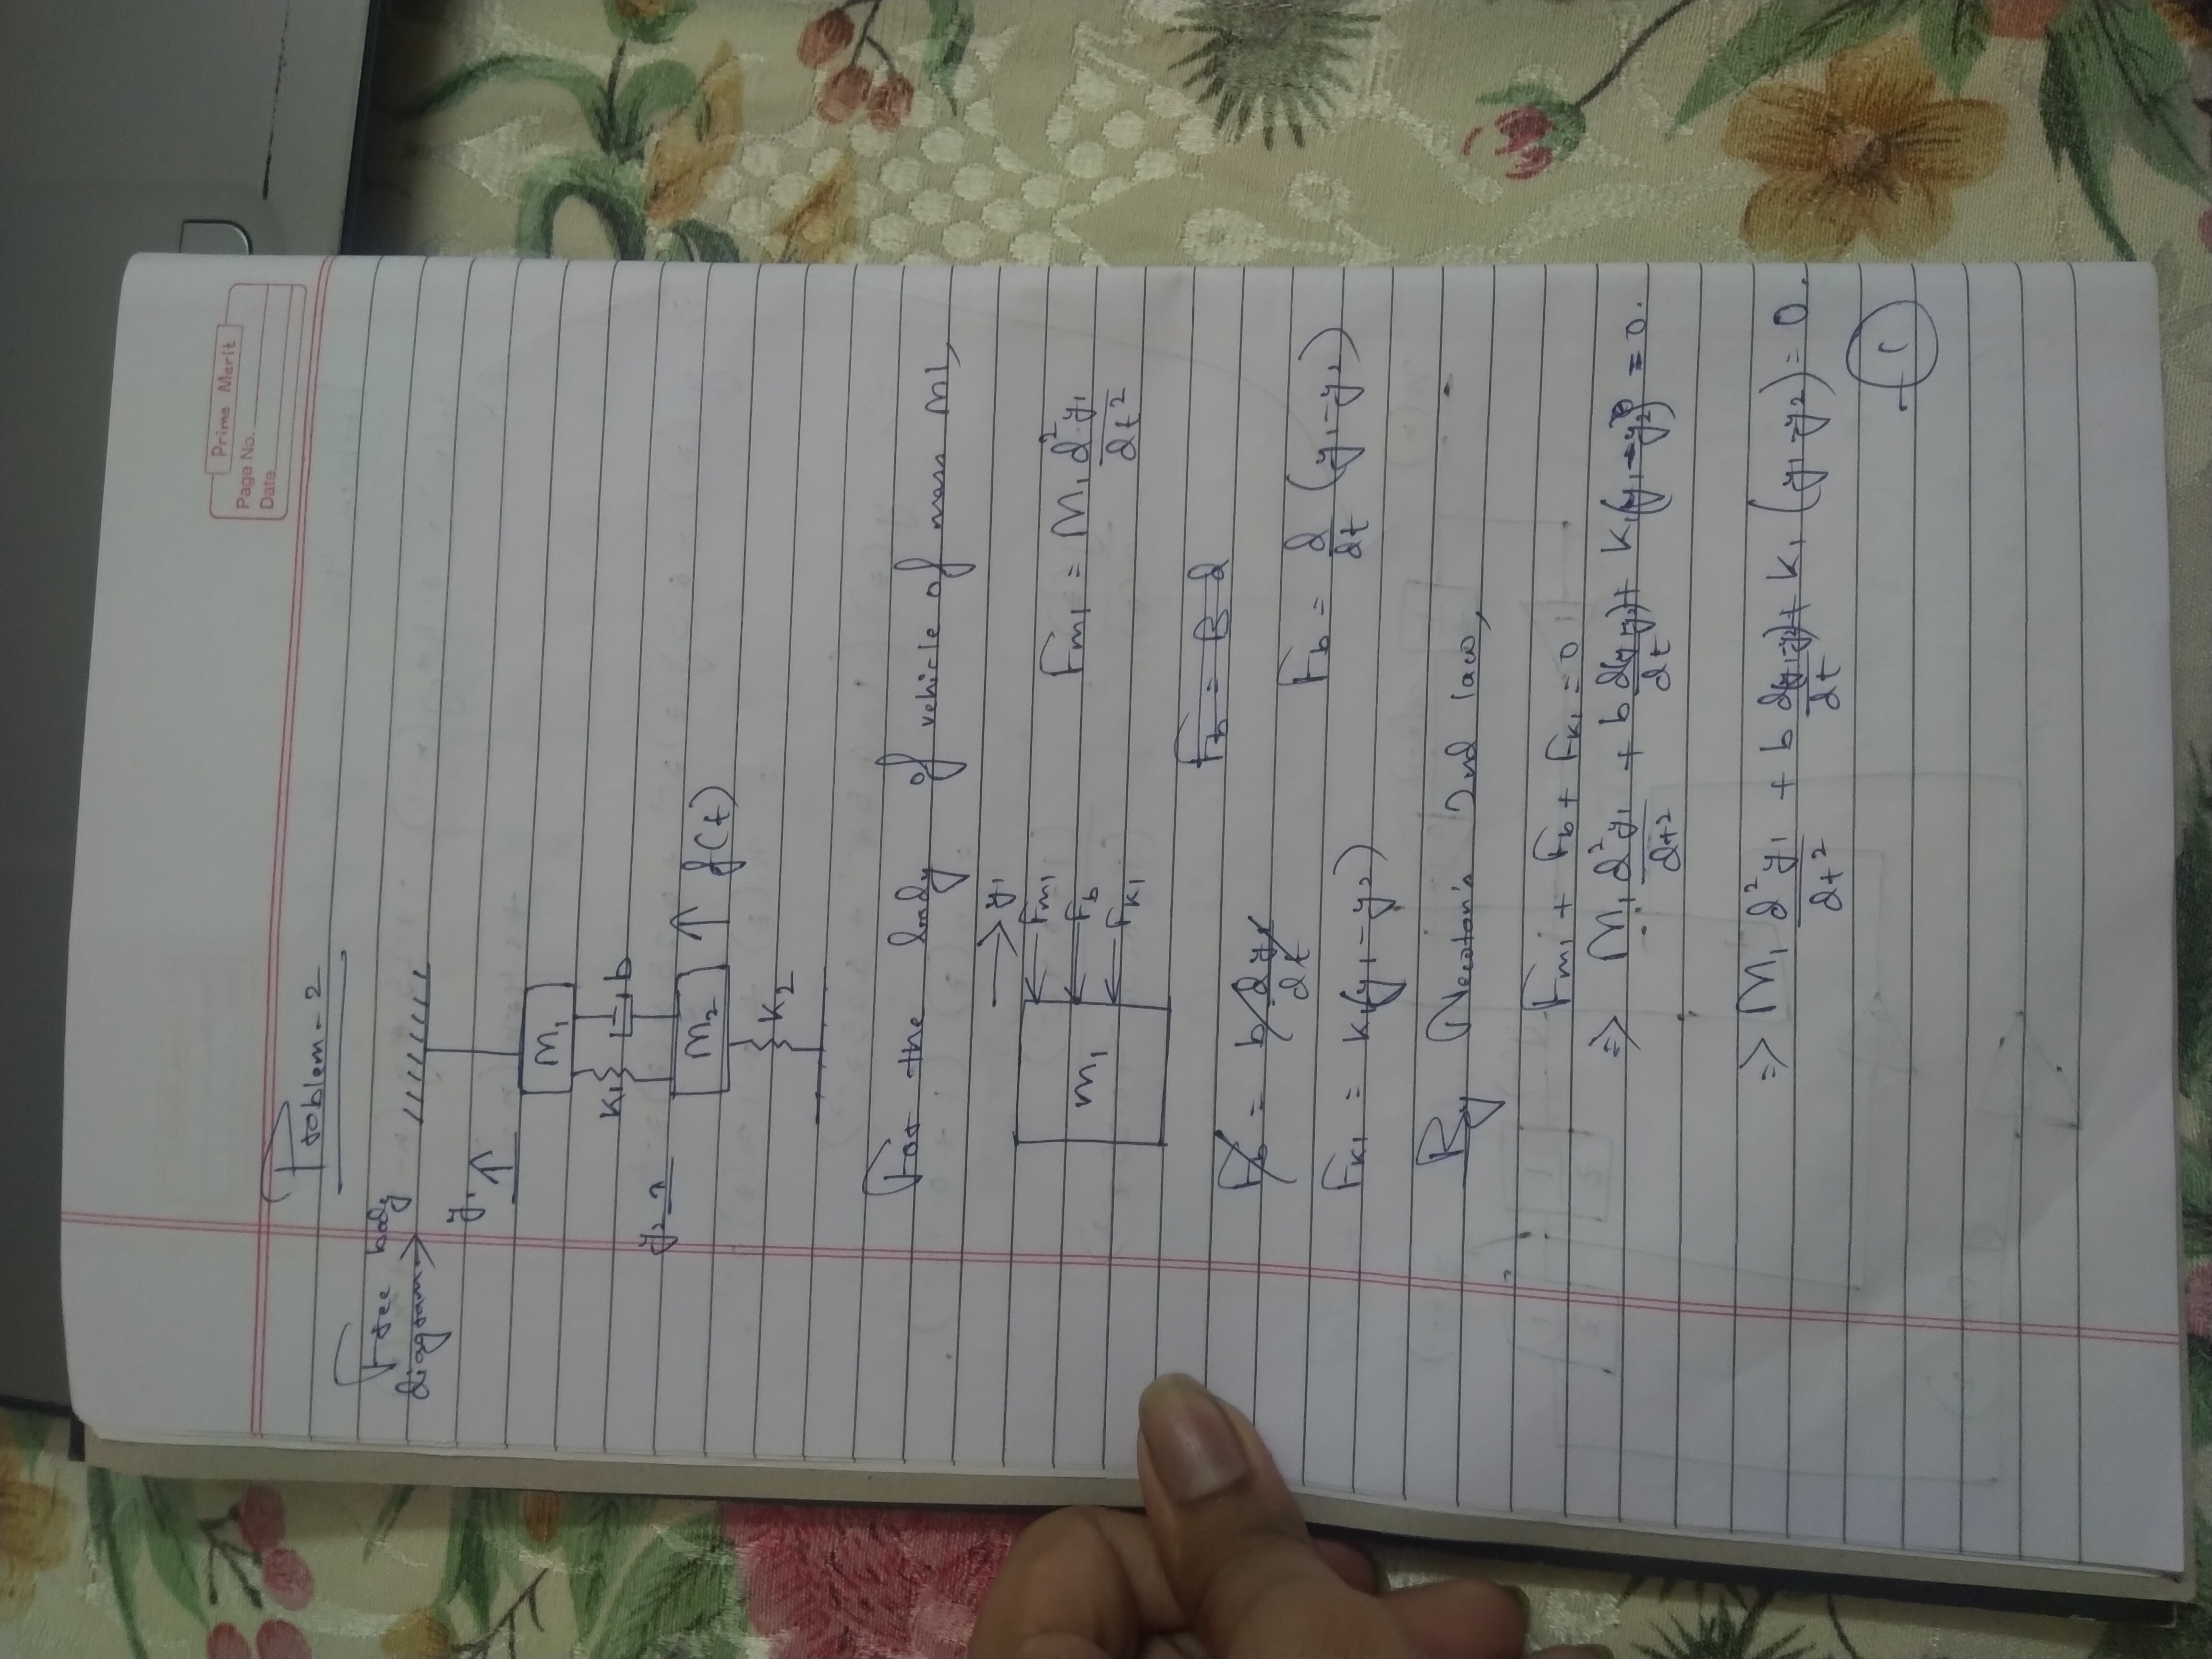 Prime Merit
Page No.
Date
Problem - 2
Free body
diagram →
y₁ ↑
M₁
K₁ b
y₂
M₂ ↑ f(t)
K₂
For the body of vehicle of mass M1,
→ y₁
m₁
← Fm₁
← Fb
← FK₁
Fm₁ = M₁ d²y₁/dt²
Fb = B d
Fb = b dy₁/dt
Fb = d/dt (y₁-y₂)
FK₁ = K₁(y₁-y₂)
By Newton's 2nd law,
Fm₁ + Fb + FK₁ = 0
⇒ M₁ d²y₁/dt² + b d(y-y₂)/dt + K₁(y₁-y₂) = 0.
⇒ M₁ d²y₁/dt² + b d(y₁-y₂)/dt + K₁ (y₁-y₂) = 0.
- ①